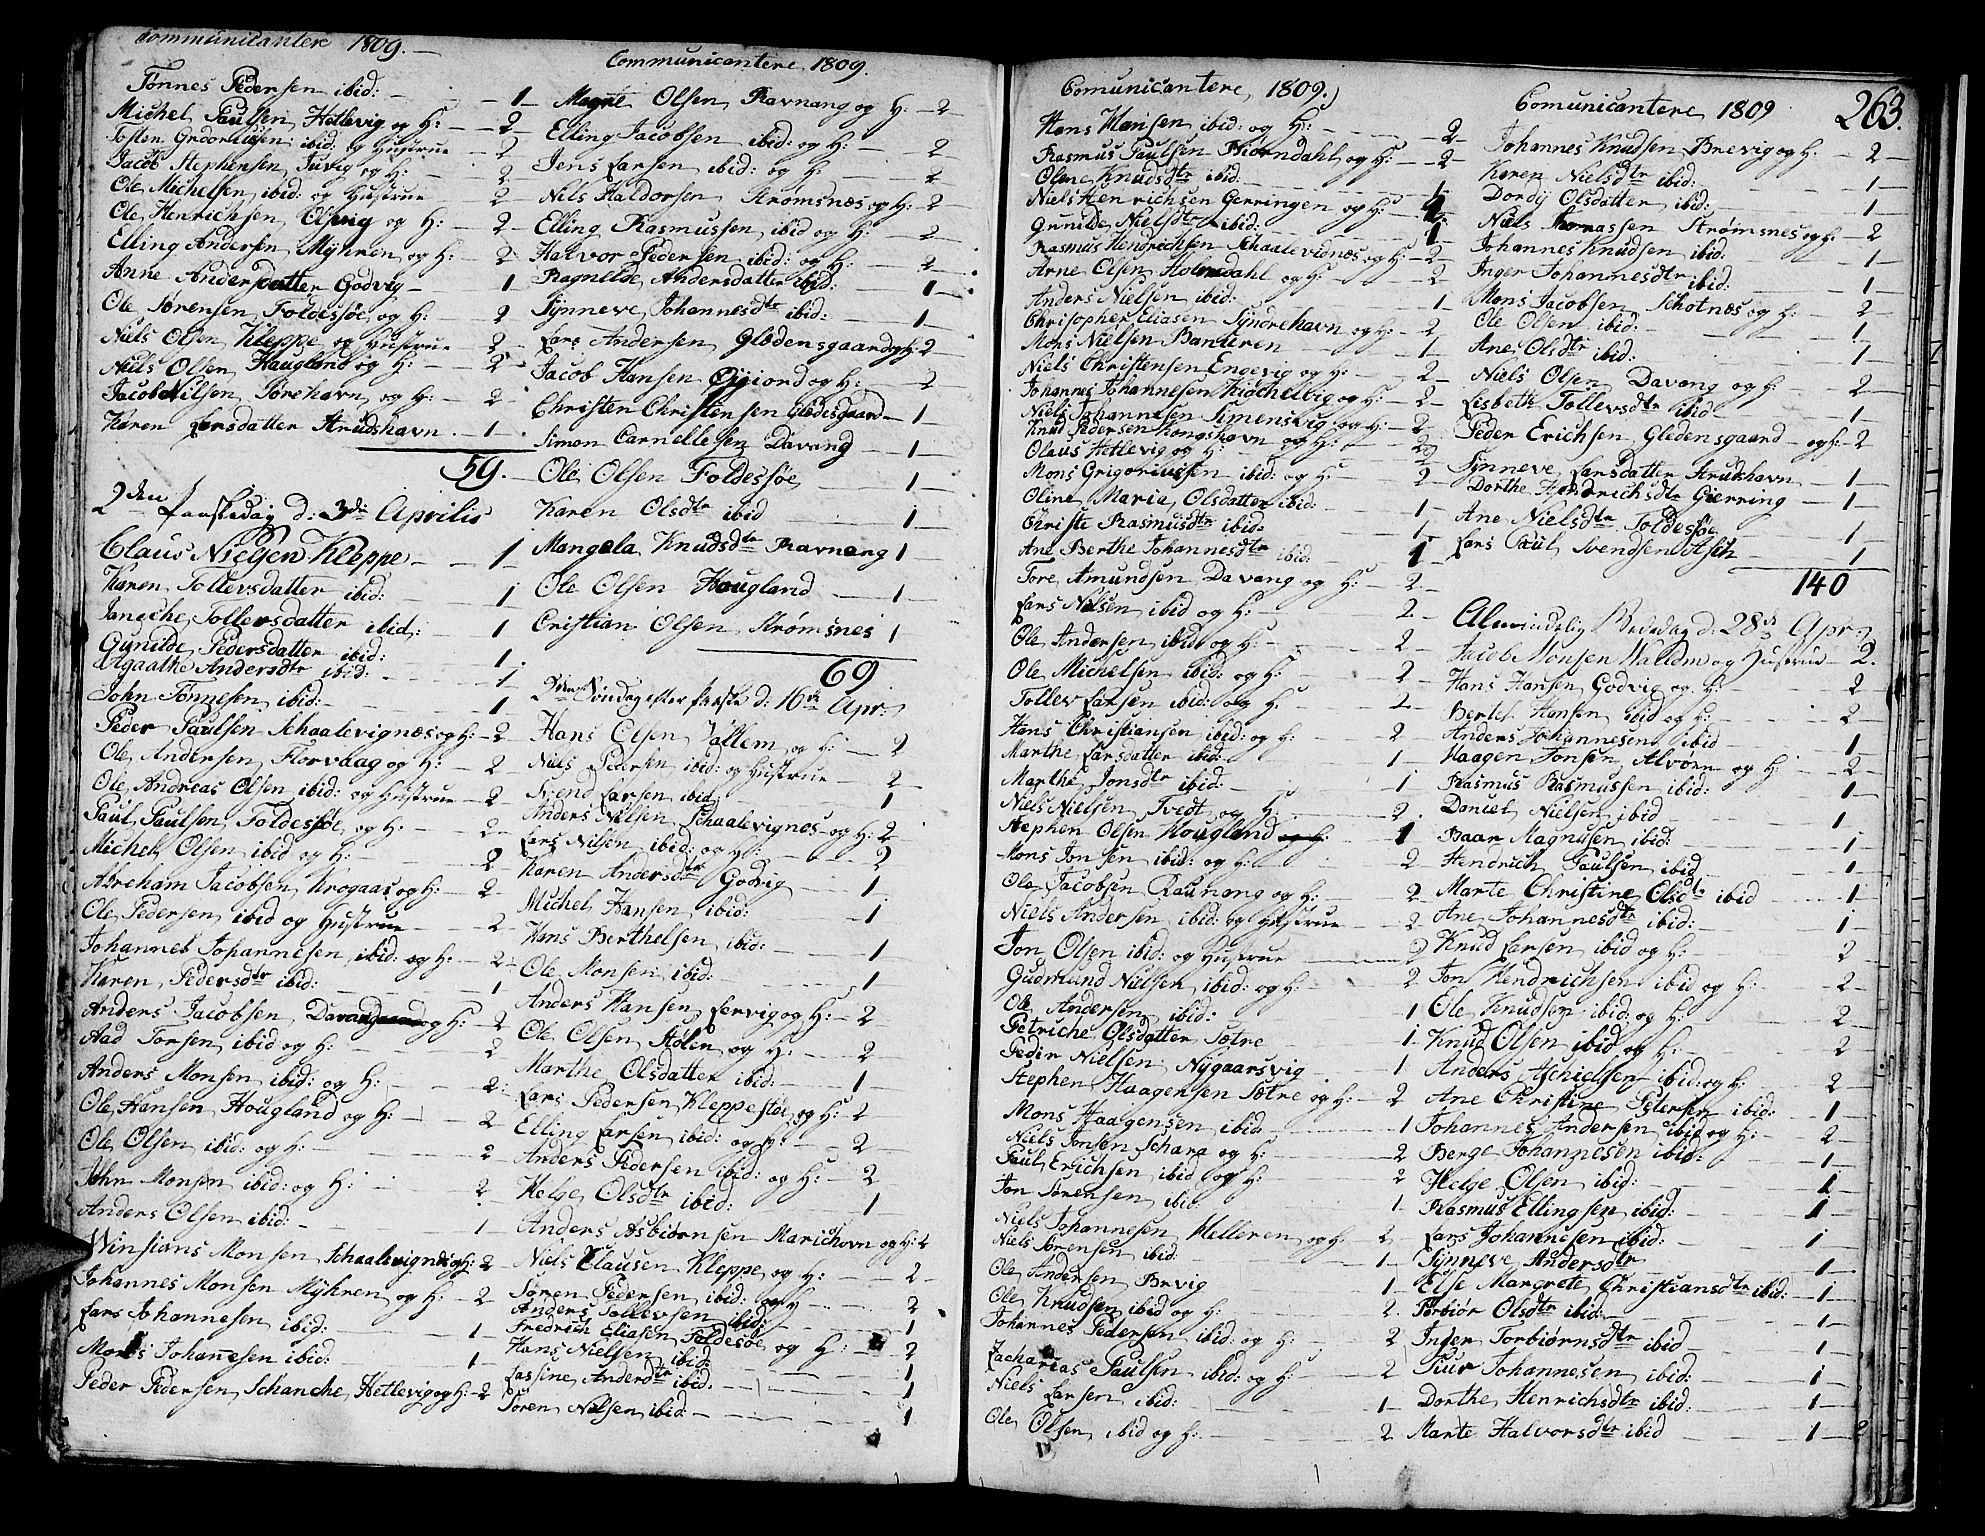 Communicantere 1809.
Tönnes Pedersen ibid: 1
Michel Paulsen, Hetlevig og H: 2
Tosten Gregoriusen ibid: og Hustrue 2
Jacob Stephensen, Juvig og H: 2
Ole Michelsen, ibid: og Hustrue 2
Ole Henrichsen, Olsvig og H: 2
Elling Andersen, Mÿhren, og H: 2
Anne Andersdatter Godvig 1
Ole Sørensen, Foldessøe, og H: 2
Niels Olsen, Kleppe, og Hustrue 2
Niels Olsen, Haugland og H: 2
Jacob Nilsen, Sørehavn, og H: 2
Karen Larsdatter Strudshavn 1
59.
2den Paaskedag d: 3die Aprilis
Claus Nielsen Kleppe 1
Karen Tollevsdatter ibid: 1
Jansche Tollevsdatter ibid: 1
Gunilde Pedersdatter ibid: 1
Agaathe Andersdtr ibid: 1
John Tönnesen, ibid: 1
Peder Paulsen Schaalevignæs og H: 2
Ole Andersen, Florvaag og H: 2
Ole Andreas Olsen ibid: og Hustrue 2
Paul Paulsen, Foldessøe, og H: 2
Michel Olsen ibid og H: 2
Abraham Jacobsen, Krogaas og H: 2
Ole Pedersen, ibid og Hustrue 2
Johannes Johannesen, ibid: og H: 2
Karen, Pedersdtr ibid: 1
Anders Jacobsen, og H: 2
Aad Torsen, ibid og H: 2
Anders Monsen, ibid: og H: 2
Ole Hansen, Hougland og H: 2
Ole Olsen, ibid: og H: 2
John Monsen, ibid: og H: 2
Anders Olsen ibid: 1
Monsen, Schaalevignes og H: 2
Johannes Monsen Mÿhren, og H: 2
Lars Johannesen, ibid: 1
Mons Johanesen ibid: 1
Peder Pedersen, Schanche, Hetlevig og H: 2
Communicantere, 1809.
Magne Olsen, Ravnang og H: 2
Elling Jacobsen ibid: og H: 2
Jens Larsen, ibid: og H: 2
Nils Haldorsen, Strømsnæs, og H: 2
Elling Rasmussen, ibid og H: 2
Halvor Pedersen ibid: og H: 2
Ragnilde, Andersdatter ibid: 1
Synneve, Johannesdtr ibid: 1
Lars Andersen, Gledensgaard og H 2
Jacob Hansen, og H: 2
Christen Christensen Gledesgaard 1
Simon Carnellesen Davang 1
Ole Olsen Foldessøe 1
Karen Olsdtr ibid 1
Mangela Knudsdtr Ravnang 1
Ole Olsen, Hougland 1
Cristian Olsen, Strømsnes 1
69
2den Søndag efter Paaske d: 16de Apr:
Hans Olsen, Vallem og H: 2
Niels Pedersen, ibid: og Hustrue 2
Svend Larsen, ibid: 1
Anders Nilsen, Schaalevignes og H: 2
Lars Nilsen, ibid: og H: 2
Karen Andersdtr Godvig 1
Michel Hansen, ibid: 1
Hans Berthelsen, ibid: 1
Ole Monsen, ibid: 1
Anders Hansen, Lervig og H: 2
Ole Olsen, Stölen, og H: 2
Marthe, Olsdatter ibid: 1
Lars Pedersen, Kleppestøe, og H: 2
Elling Larsen, ibid: og H: 2
Anders Pedersen ibid: og H: 2
Helge, Olsdtr ibid: 1
Anders Asbiørnsen Marichovn og H: 2
Niels Clausen, Kleppe, og H: 2
Søren Pedersen, ibid: og H 2
Anders Tollevsen, ibid: 1
Fredrich Eliasen, Foldesøe, og H: 2
Hans Nielsen, ibid: 1
Lassine, Andersdtr ibid: 1
Søren, Nilsen, ibid: 1
Comunicantere, 1809.
Hans Hansen, ibid: og H: 2
Rasmus Paulsen, Biørndahl, og H: 2
Oline, Knudsdtr ibid: 1
Niels Henrichsen Gerringen og H:
Gunilde, Nielsdtr ibid: 1
Rasmus Hendrichsen, Schaalevidnæs og H: 2
Arne Olsen, Holmdahl og H: 2
Anders Nielsen, ibid: 1
Christopher, Eliasen, Syndrehavn, og H: 2
Mons Nielsen, Banteren 1
Niels Christensen, Engevig og H: 2
Johannes Johannesen, Kiöchelvig og H: 2
Niels Johannesen Simensvig og H: 2
Knud Pedersen Kongshavn og H: 2
Olaus Hetlevig og H: 2
Mons Grigoriusen ibid: og H: 2
Oline, Maria, Olsdatter ibid: 1
Christe Rasmusdtr ibid: 1
Ane Berthe Johannesdtr ibid: 1
Tore, Amundsen, Davang og H: 2
Lars Nilsen, ibid og H: 2
Ole Andersen, ibid og H: 2
Ole Michelsen, ibid: og H: 2
Tollev Larsen, ibid: og H 2
Hans Christiansen, ibid: og H: 2
Marthe, Larsdatter ibid: 1
Marthe, Jonsdtr ibid: 1
Niels Nielsen, Tvedt og H: 2
Stephen Olsen, Hougland 1
Mons Jonsen, ibid: og H: 2
Ole Jacobsen, Raunang og H: 2
Niels Andersen, ibid: og Hustrue 2
Jon Olsen ibid: og Hustrue 2
Gudmund Nielsen, ibid: og H: 2
Ole Andersen, ibid: 1
Petriche Olsdatter, Sætre 1
Peder Nielsen, Nÿgaarsvig 1
Stephen Haagensen Sætre og H: 2
Mons Haagensen, ibid 1
Niels Jonsen, Schara og H: 2
Paul Erichsen, ibid og H: 2
Jon Sørensen, ibid: 1
Niels Johannesen, Helleren, og H: 2
Niels Sørensen, ibid: 1
Ole Andersen, Brevig 1
Ole Knudsen, ibid og H: 2
Johannes Pedersen, ibid: og H: 2
Zacharias Paulsen, ibid: og H: 2
Niels Larsen, ibid: 1
Ole Olsen, ibid og H: 2
Comunicantere, 1809
263.
Johannes Knudsen, Brevig og H. 2
Karen Nielsdtr ibid: 1
Dordÿ Olsdatter, ibid: 1
Niels Thomassen, Strømsnes og H: 2
Johannes Knudsen, ibid: 1
Inger Johannesdtr ibid: 1
Mons Jacobsen, Schotnæs og H: 2
Ole Olsen, ibid: 1
Ane, Olsdtr ibid: 1
Niels Olsen, Davang og H: 2
Lisbeth Tollevsdtr ibid 1
Peder Erichsen, Gledensgaard og H: 2
Synneve, Larsdatter Strudshavn 1
Dorthe Hendrichsdtr Gierring 1
Ane Nielsdtr Foldessøe 1
Lars Paul Svendsen Asch 1
140
Almindelig Bededag d: 28de Apr:
Jacob Monsen, og Hustrue 2.
Hans Hansen, Godvig og H: 2
Bertel Hansen, ibid og H: 2
Anders Johannesen ibid 1
Haagen Jonsen, Alvøen og H: 2
Rasmus Rasmussen ibid: 1
Daniel Nielsen, ibid 1
Baar Magnusen, ibid: 1
Hendrich Paulsen, ibid 1
Marte Christine Olsdtr ibid 1
Ane, Johannesdtr ibid: 1
Knud Larsen, ibid og H: 2
Jon Hendrichsen ibid og H: 2
Ole Knudsen ibid: og H: 2
Knud Olsen ibid og H: 2
Anders Aschielsen ibid: og H: 2
Ane Christine Petersen ibid: 1
Johannes Andersen ibid og H: 2
Berge Johannesen ibid: 1
Helge, Olsen, ibid: 1
Rasmus Ellingsen, ibid: 1
Lars Johannesen ibid: 1
Synneve, Andersdtr 1
Else Margrete, Christiansdtr ibid: 1
Torbiør Olsdtr ibid: 1
Inger Torbiørnsdtr ibid 1
Johannesen ibid: 1
Dorthe Henrichsdtr ibid: 1
Marte Halvorsdtr ibid 1